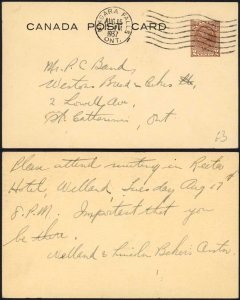 CANADA POST CARD
NIAGARA FALLS
AUG 15
1937
ONT.
Mr. P C Bands
Westons Bread & Cakes
2 Lowell Ave,
St Catharines, Ont
63
Please attend meeting in Reeta
Hotel, Welland, Tuesday Aug 17th
8 P.M. Important that you
be there.
Welland & Lincoln Bakers Asstn.